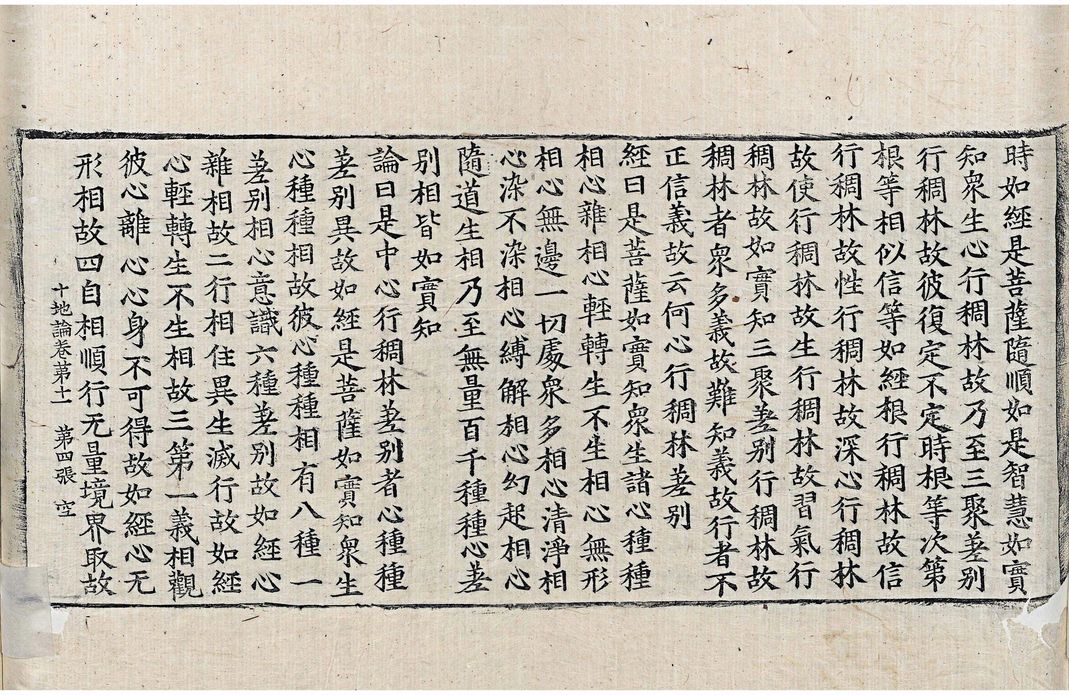 時如經是菩薩隨順如是智慧如實
知衆生心行稠林故乃至三聚差别
行稠林故彼復定不定時根等次第
根等相似信等如經根行稠林故信
行稠林故性行稠林故深心行稠林
故使行稠林故生行稠林故習氣行
稠林故如實知三聚差别行稠林故
稠林者衆多義故難知義故行者不
正信義故云何心行稠林差别
經曰是菩薩如實知衆生諸心種種
相心雜相心輕轉生不生相心無形
相心無邊一切處衆多相心清淨相
心染不染相心縛解相心幻起相心
隨道生相乃至無量百千種種心差
别相皆如實知
論曰是中心行稠林差别者心種種
差别異故如經是菩薩如實知衆生
心種種相故彼心種種相有八種一
差别相心意識六種差别故如經心
雜相故二行相住異生滅行故如經
心輕轉生不生相故三第一義相觀
彼心離心心身不可得故如經心无
形相故四自相順行无量境界取故
十地論卷第十一 第四張 空